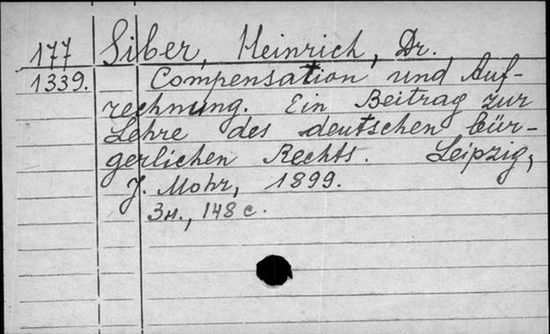 177 Siber, Heinrich, Dr.
1339. Compensation und Auf-
rechnung. Ein Beitrag zur
Lehre des deutschen bür-
gerlichen Rechts. Leipzig,
J. Mohr, 1899.
3н., 148 с.